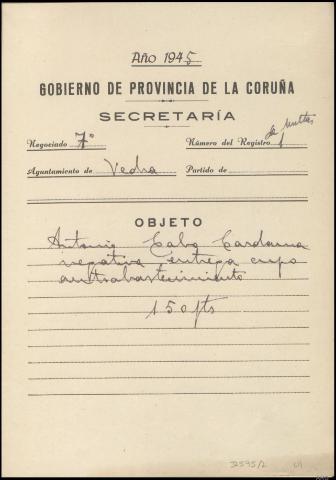 Año 1945
GOBIERNO DE PROVINCIA DE LA CORUÑA
SECRETARÍA
de multas
Negociado 7º Número del Registro 1
Ayuntamiento de Vedra Partido de
OBJETO
Antonio Cabo Cardama
negativa entrega cupo
autoabastecimiento
150 pts
32595/2